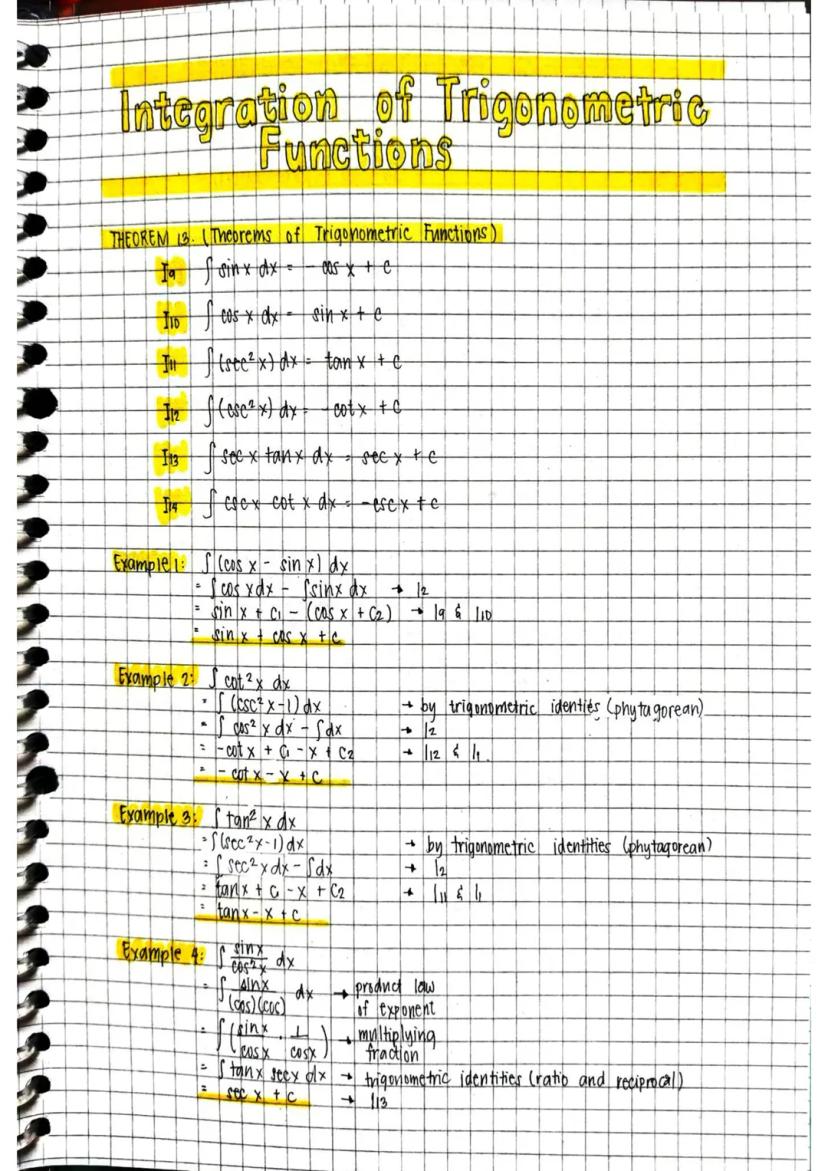 Integration of Trigonometric
Functions
THEOREM 13. (Theorems of Trigonometric Functions)
I9 ∫ sin x dx = - cos x + c
I10 ∫ cos x dx = sin x + c
I11 ∫ (sec² x) dx = tan x + c
I12 ∫ (csc² x) dx = - cot x + c
I13 ∫ sec x tan x dx = sec x + c
I14 ∫ csc x cot x dx = -csc x + c
Example 1: ∫ (cos x - sin x) dx
= ∫ cos x dx - ∫ sin x dx → I2
= sin x + c1 - (cos x + c2) → I9 & I10
= sin x + cos x + c
Example 2: ∫ cot² x dx
= ∫ (csc² x - 1) dx → by trigonometric identies (phytagorean)
= ∫ cos² x dx - ∫ dx → I2
= -cot x + c1 - x + c2 → I12 & I1.
= - cot x - x + c
Example 3: ∫ tan² x dx
= ∫ (sec² x - 1) dx → by trigonometric identities (phytagorean)
= ∫ sec² x dx - ∫ dx → I2
= tan x + c - x + c2 → I11 & I1
= tan x - x + c
Example 4: ∫ sin x / cos² x dx
= ∫ sin x / (cos)(cos) dx → product law
of exponent
= ∫ (sin x / cos x · 1 / cos x) → multiplying
fraction
= ∫ tan x sec x dx → trigonometric identities (ratio and reciprocal)
= sec x + c → I13